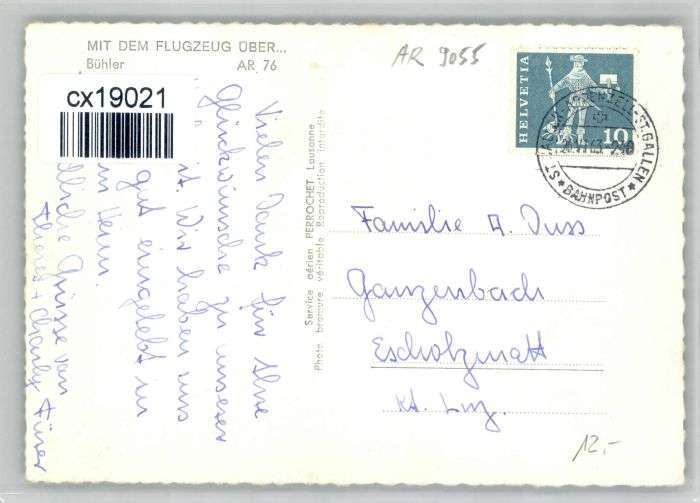 MIT DEM FLUGZEUG ÜBER...
Bühler AR 76
cx19021
AR 9055
HELVETIA
10
ST. GALLEN
★ BAHNPOST ★
Vielen Dank für Ihre
Glückwünsche zu unserer
Wir haben uns
gut eingelebt in
Grüsse von
Service aérien PERROCHET Lausanne
Photo bromure véritable Reproduction interdite
Familie A. Duss
Ganzenbach
Escholzmatt
Kt. Luz.
12.-